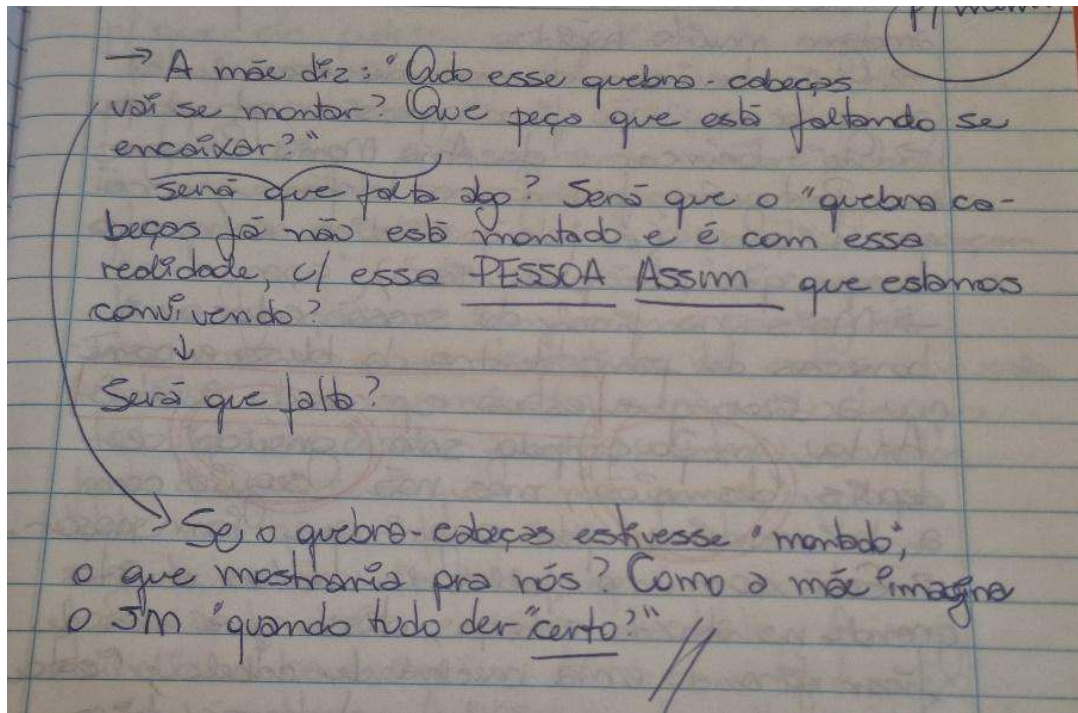 p/
→ A mãe diz: "Qdo esse quebra-cabeças
vai se montar? Que peça que está faltando se
encaixar?"
Será que falta algo? Será que o "quebra ca-
beças já não está montado e é com essa
realidade, c/ essa PESSOA Assim que estamos
convivendo?
↓
Será que falta?
Se o quebra-cabeças estivesse "montado",
o que mostraria pra nós? Como a mãe imagina
o JM "quando tudo der "certo?"